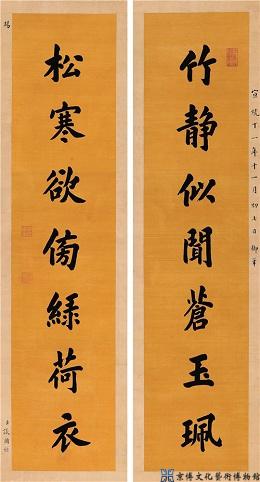 宣統十一年十一月初七日御筆
竹静似聞蒼玉珮
松寒欲倚緑荷衣
賜
京博文化藝術博物館